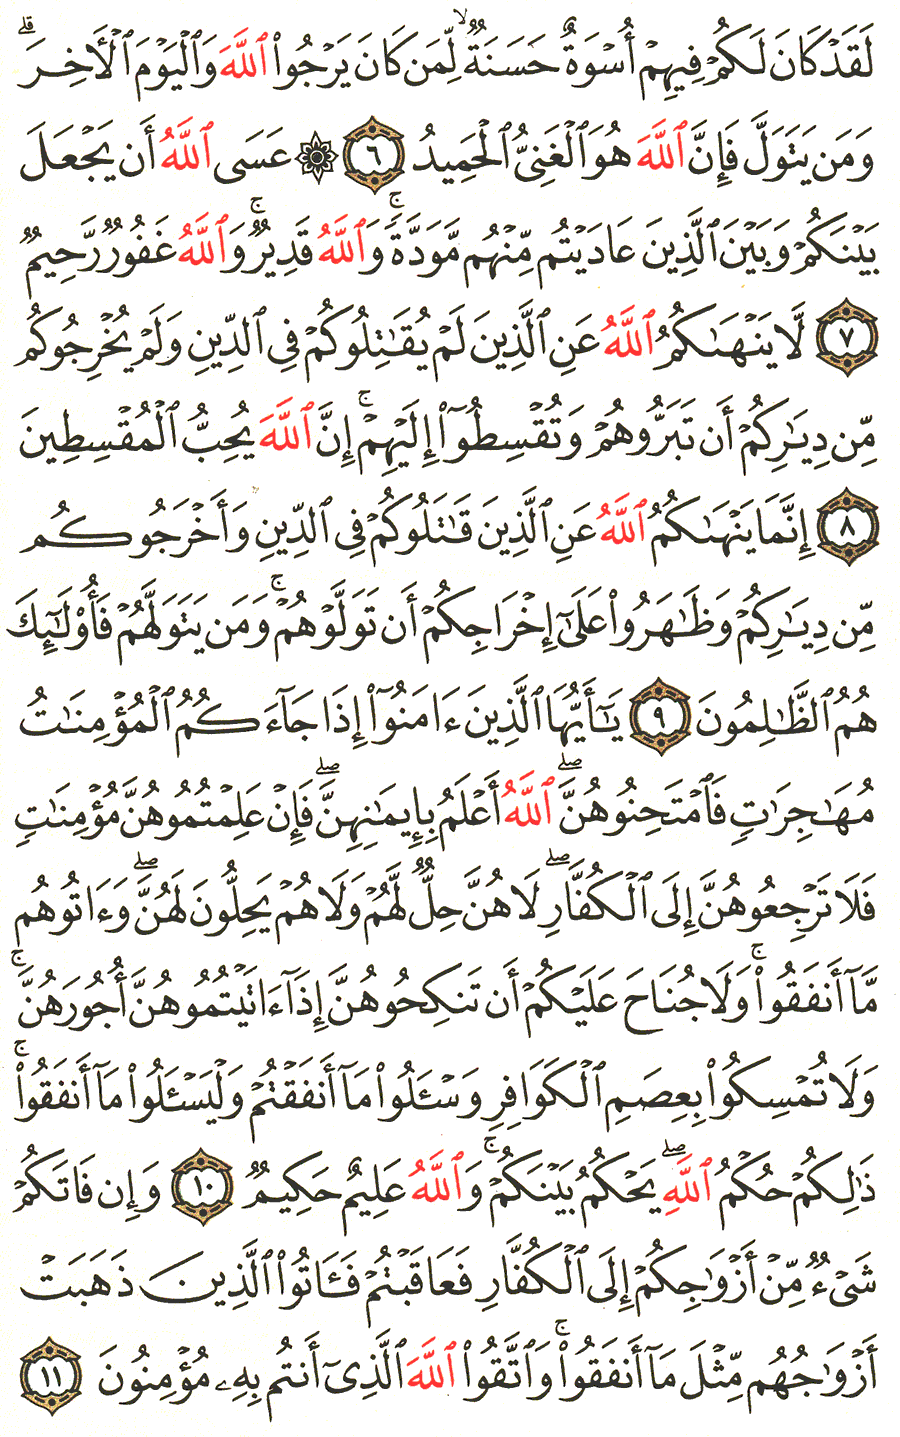 لَقَدْ كَانَ لَكُمْ فِيهِمْ أُسْوَةٌ حَسَنَةٌ لِّمَن كَانَ يَرْجُوا۟ ٱللَّهَ وَٱلْيَوْمَ ٱلْـَٔاخِرَ ۚ
وَمَن يَتَوَلَّ فَإِنَّ ٱللَّهَ هُوَ ٱلْغَنِىُّ ٱلْحَمِيدُ ٦ ۞ عَسَى ٱللَّهُ أَن يَجْعَلَ
بَيْنَكُمْ وَبَيْنَ ٱلَّذِينَ عَادَيْتُم مِّنْهُم مَّوَدَّةً ۚ وَٱللَّهُ قَدِيرٌ ۚ وَٱللَّهُ غَفُورٌ رَّحِيمٌ
٧ لَّا يَنْهَىٰكُمُ ٱللَّهُ عَنِ ٱلَّذِينَ لَمْ يُقَـٰتِلُوكُمْ فِى ٱلدِّينِ وَلَمْ يُخْرِجُوكُم
مِّن دِيَـٰرِكُمْ أَن تَبَرُّوهُمْ وَتُقْسِطُوٓا۟ إِلَيْهِمْ ۚ إِنَّ ٱللَّهَ يُحِبُّ ٱلْمُقْسِطِينَ
٨ إِنَّمَا يَنْهَىٰكُمُ ٱللَّهُ عَنِ ٱلَّذِينَ قَـٰتَلُوكُمْ فِى ٱلدِّينِ وَأَخْرَجُوكُم
مِّن دِيَـٰرِكُمْ وَظَـٰهَرُوا۟ عَلَىٰٓ إِخْرَاجِكُمْ أَن تَوَلَّوْهُمْ ۚ وَمَن يَتَوَلَّهُمْ فَأُو۟لَـٰٓئِكَ
هُمُ ٱلظَّـٰلِمُونَ ٩ يَـٰٓأَيُّهَا ٱلَّذِينَ ءَامَنُوٓا۟ إِذَا جَآءَكُمُ ٱلْمُؤْمِنَـٰتُ
مُهَـٰجِرَٰتٍ فَٱمْتَحِنُوهُنَّ ۖ ٱللَّهُ أَعْلَمُ بِإِيمَـٰنِهِنَّ ۖ فَإِنْ عَلِمْتُمُوهُنَّ مُؤْمِنَـٰتٍ
فَلَا تَرْجِعُوهُنَّ إِلَى ٱلْكُفَّارِ ۖ لَا هُنَّ حِلٌّ لَّهُمْ وَلَا هُمْ يَحِلُّونَ لَهُنَّ ۖ وَءَاتُوهُم
مَّآ أَنفَقُوا۟ ۚ وَلَا جُنَاحَ عَلَيْكُمْ أَن تَنكِحُوهُنَّ إِذَآ ءَاتَيْتُمُوهُنَّ أُجُورَهُنَّ ۚ
وَلَا تُمْسِكُوا۟ بِعِصَمِ ٱلْكَوَافِرِ وَسْـَٔلُوا۟ مَآ أَنفَقْتُمْ وَلْيَسْـَٔلُوا۟ مَآ أَنفَقُوا۟ ۚ
ذَٰلِكُمْ حُكْمُ ٱللَّهِ ۖ يَحْكُمُ بَيْنَكُمْ ۚ وَٱللَّهُ عَلِيمٌ حَكِيمٌ ١٠ وَإِن فَاتَكُمْ
شَىْءٌ مِّنْ أَزْوَٰجِكُمْ إِلَى ٱلْكُفَّارِ فَعَاقَبْتُمْ فَـَٔاتُوا۟ ٱلَّذِينَ ذَهَبَتْ
أَزْوَٰجُهُم مِّثْلَ مَآ أَنفَقُوا۟ ۚ وَٱتَّقُوا۟ ٱللَّهَ ٱلَّذِىٓ أَنتُم بِهِۦ مُؤْمِنُونَ ١١